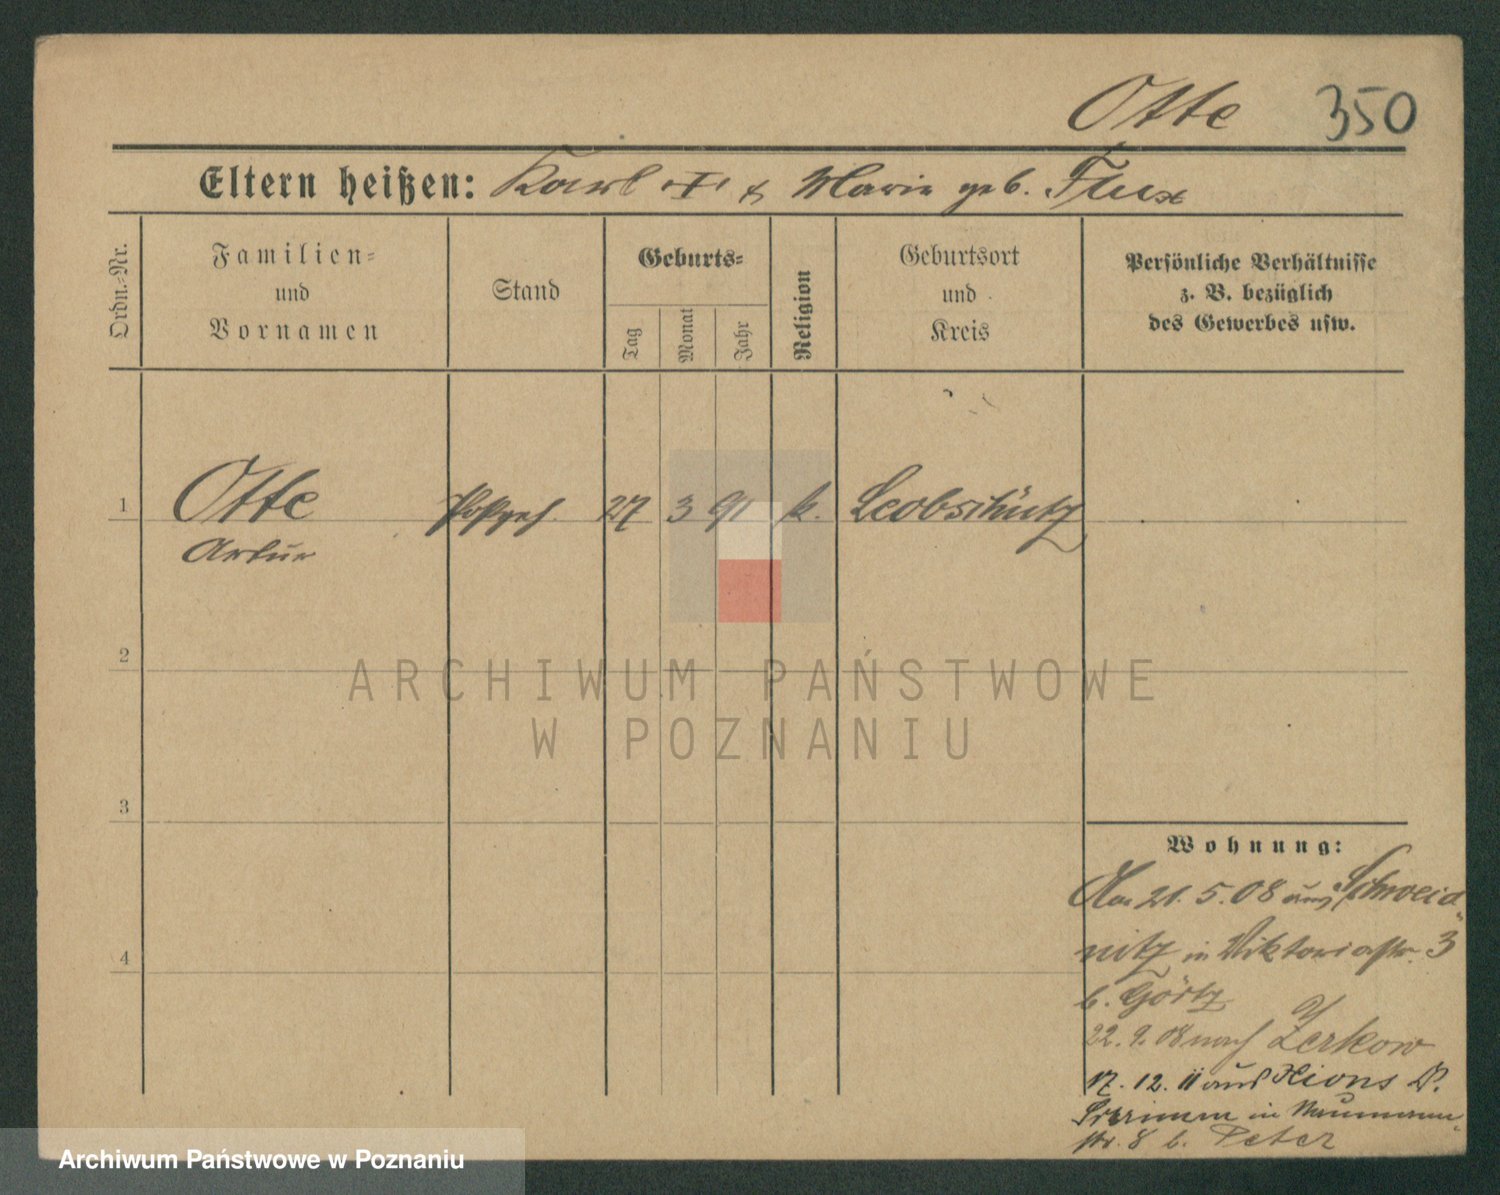 Otte 350
Eltern heißen: Karl & Marie geb. Flux
Ordn.-Nr.
Familien-
und
Vornamen
Stand
Geburts-
Tag
Monat
Jahr
Religion
Geburtsort
und
Kreis
Persönliche Verhältnisse
z. B. bezüglich
des Gewerbes usw.
1 Otte 27 3 91 k. Leobschütz
Artur
2
3
4
ARCHIWUM PAŃSTWOWE
W POZNANIU
Wohnung:
21.5.08 aus Schweid-
nitz in Viktoriastr. 3
b. Görtz
22.9.08 nach Zerkow
17.12.11 aus Xions
Schrimm in Naumann-
str. 8 b. Peter
Archiwum Państwowe w Poznaniu